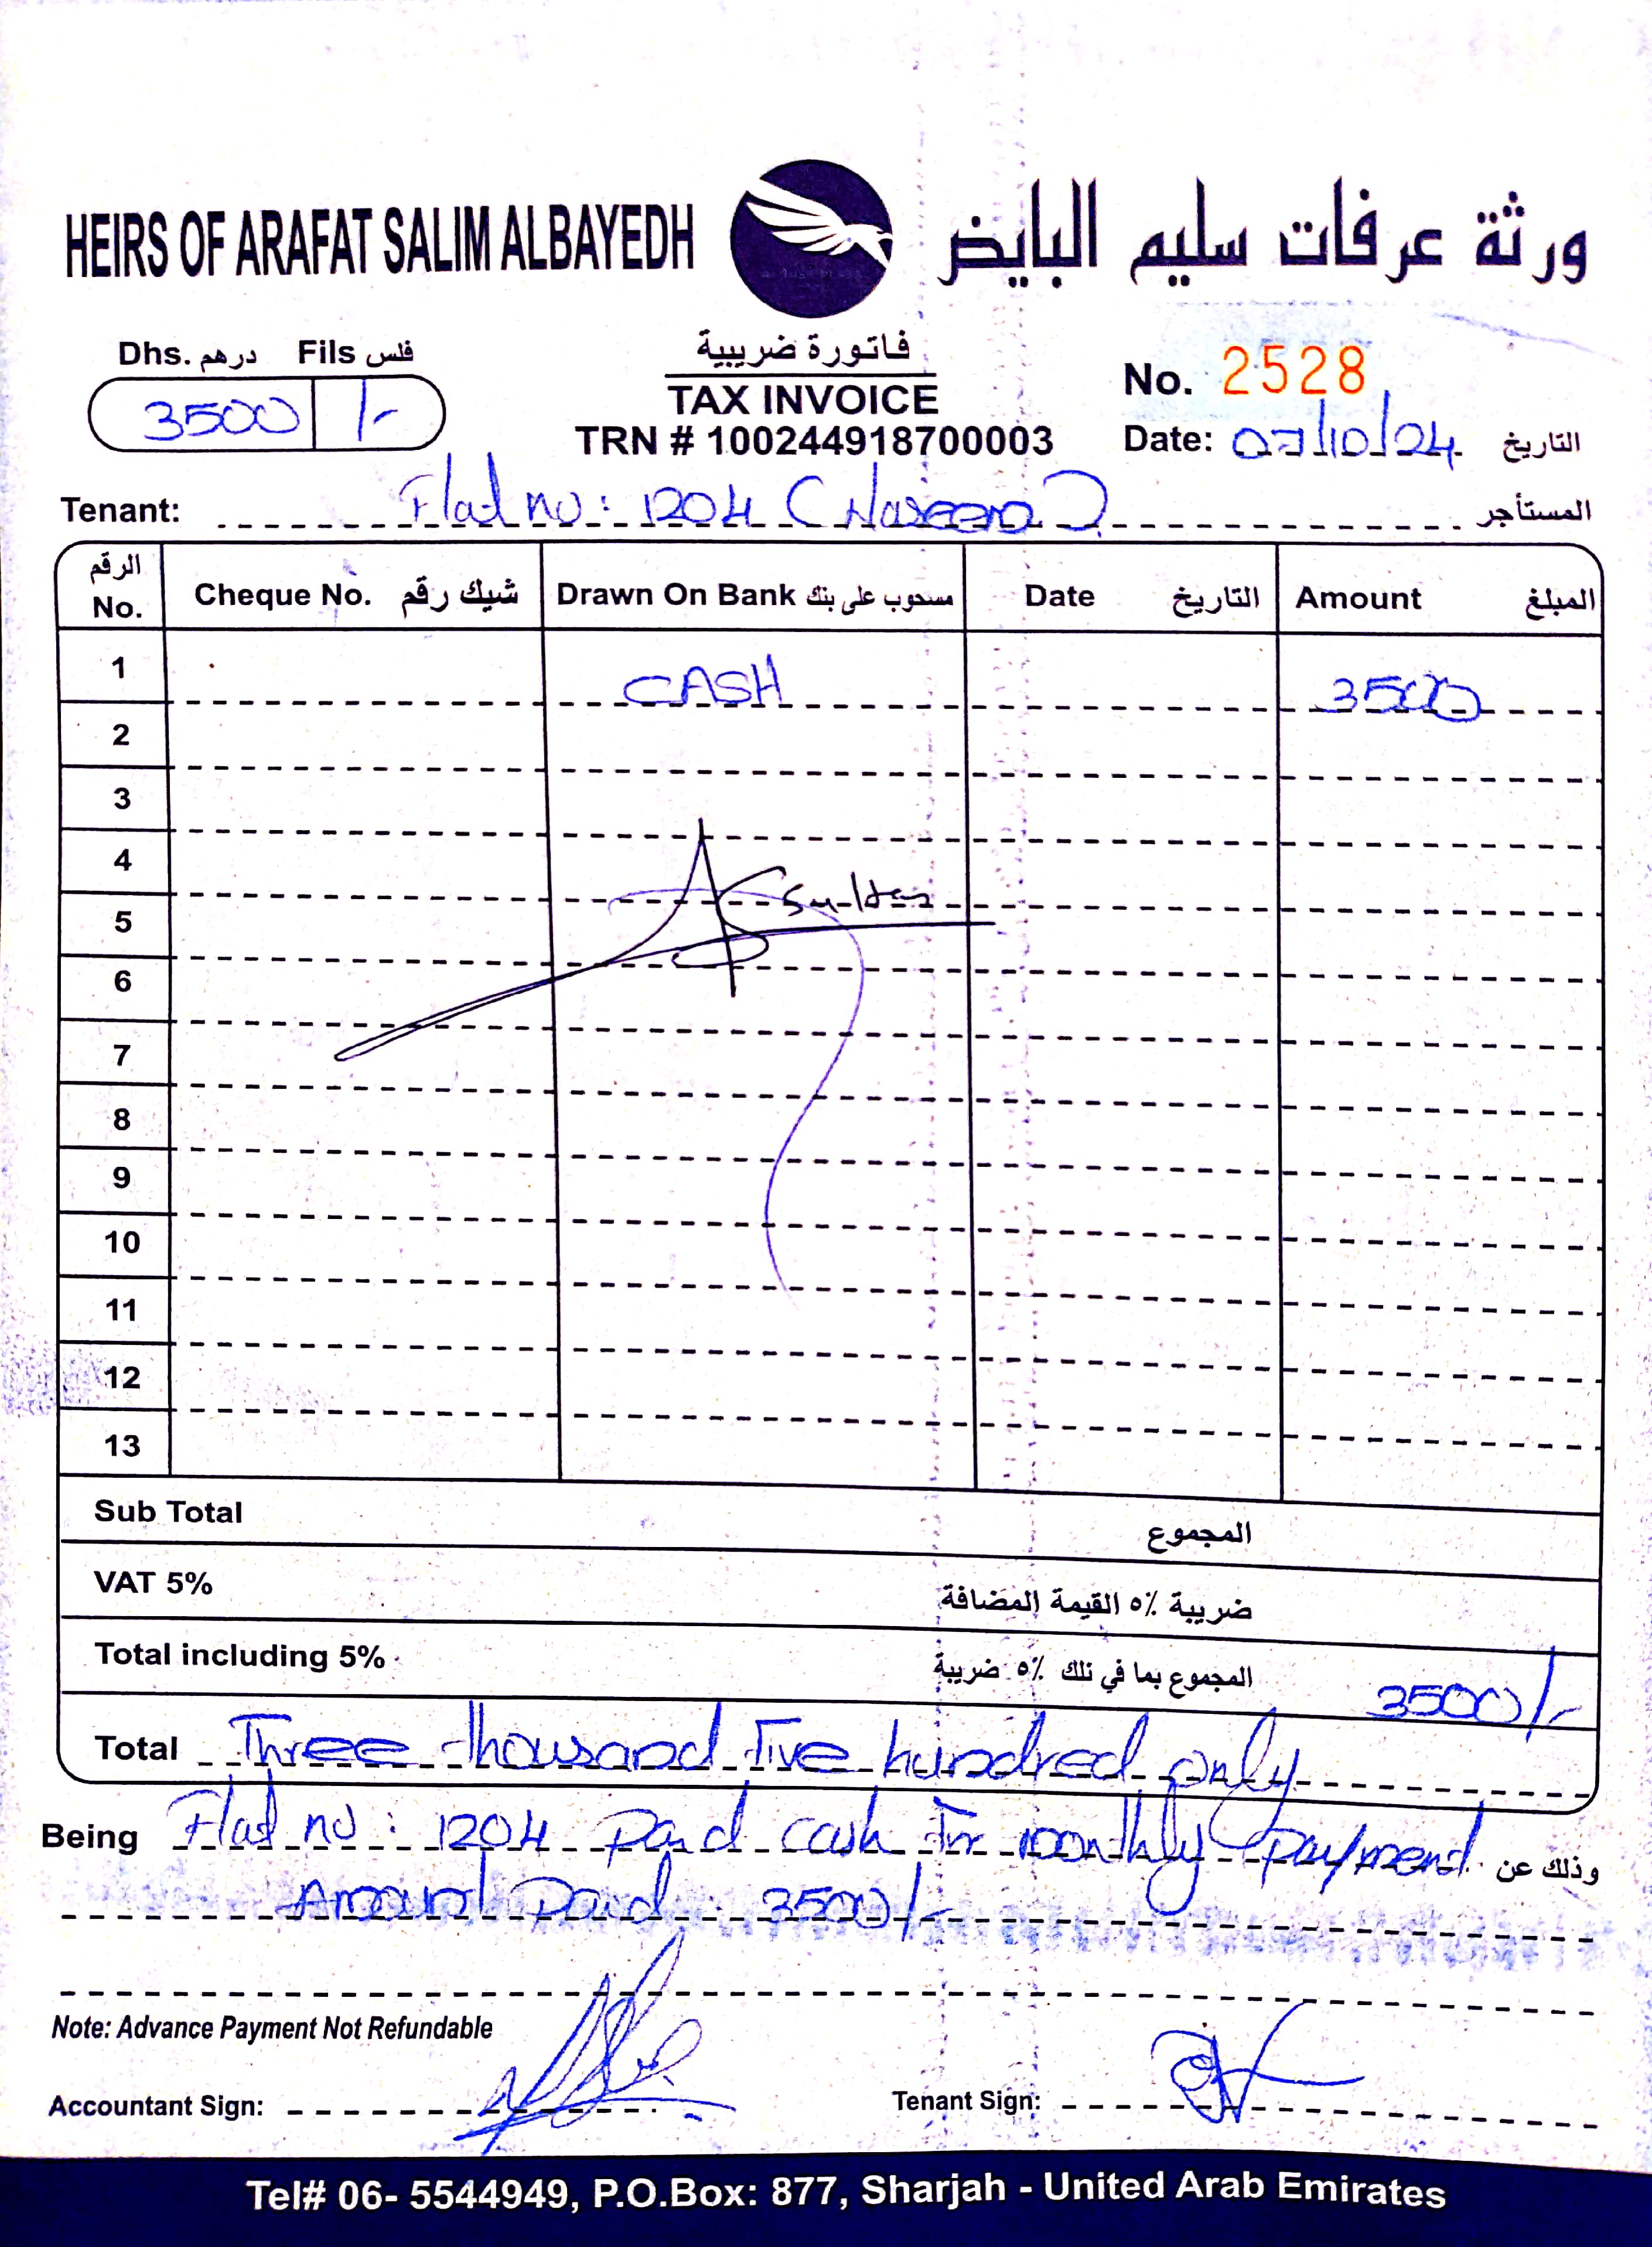 HEIRS OF ARAFAT SALIM ALBAYEDH
ورثة عرفات سليم البايض
Dhs. درهم Fils فلس
3500 /-
فاتورة ضريبية
TAX INVOICE
TRN # 100244918700003
No. 2528
Date: 07/10/24 التاريخ
Tenant: Flat no: 1204 (Naseera) المستأجر
الرقم No. Cheque No. شيك رقم Drawn On Bank مسحوب على بنك Date التاريخ Amount المبلغ
1 CASH 3500
2
3
4
Sultan
5
6
7
8
9
10
11
12
13
Sub Total المجموع
VAT 5% ضريبة ٥٪ القيمة المضافة
Total including 5% المجموع بما في تلك ٥٪ ضريبة 3500/-
Total Three thousand Five hundred only
Being Flat no: 1204 Paid cash for monthly payment وذلك عن
Amount Paid: 3500/-
Note: Advance Payment Not Refundable
Accountant Sign: Tenant Sign:
Tel# 06- 5544949, P.O.Box: 877, Sharjah - United Arab Emirates